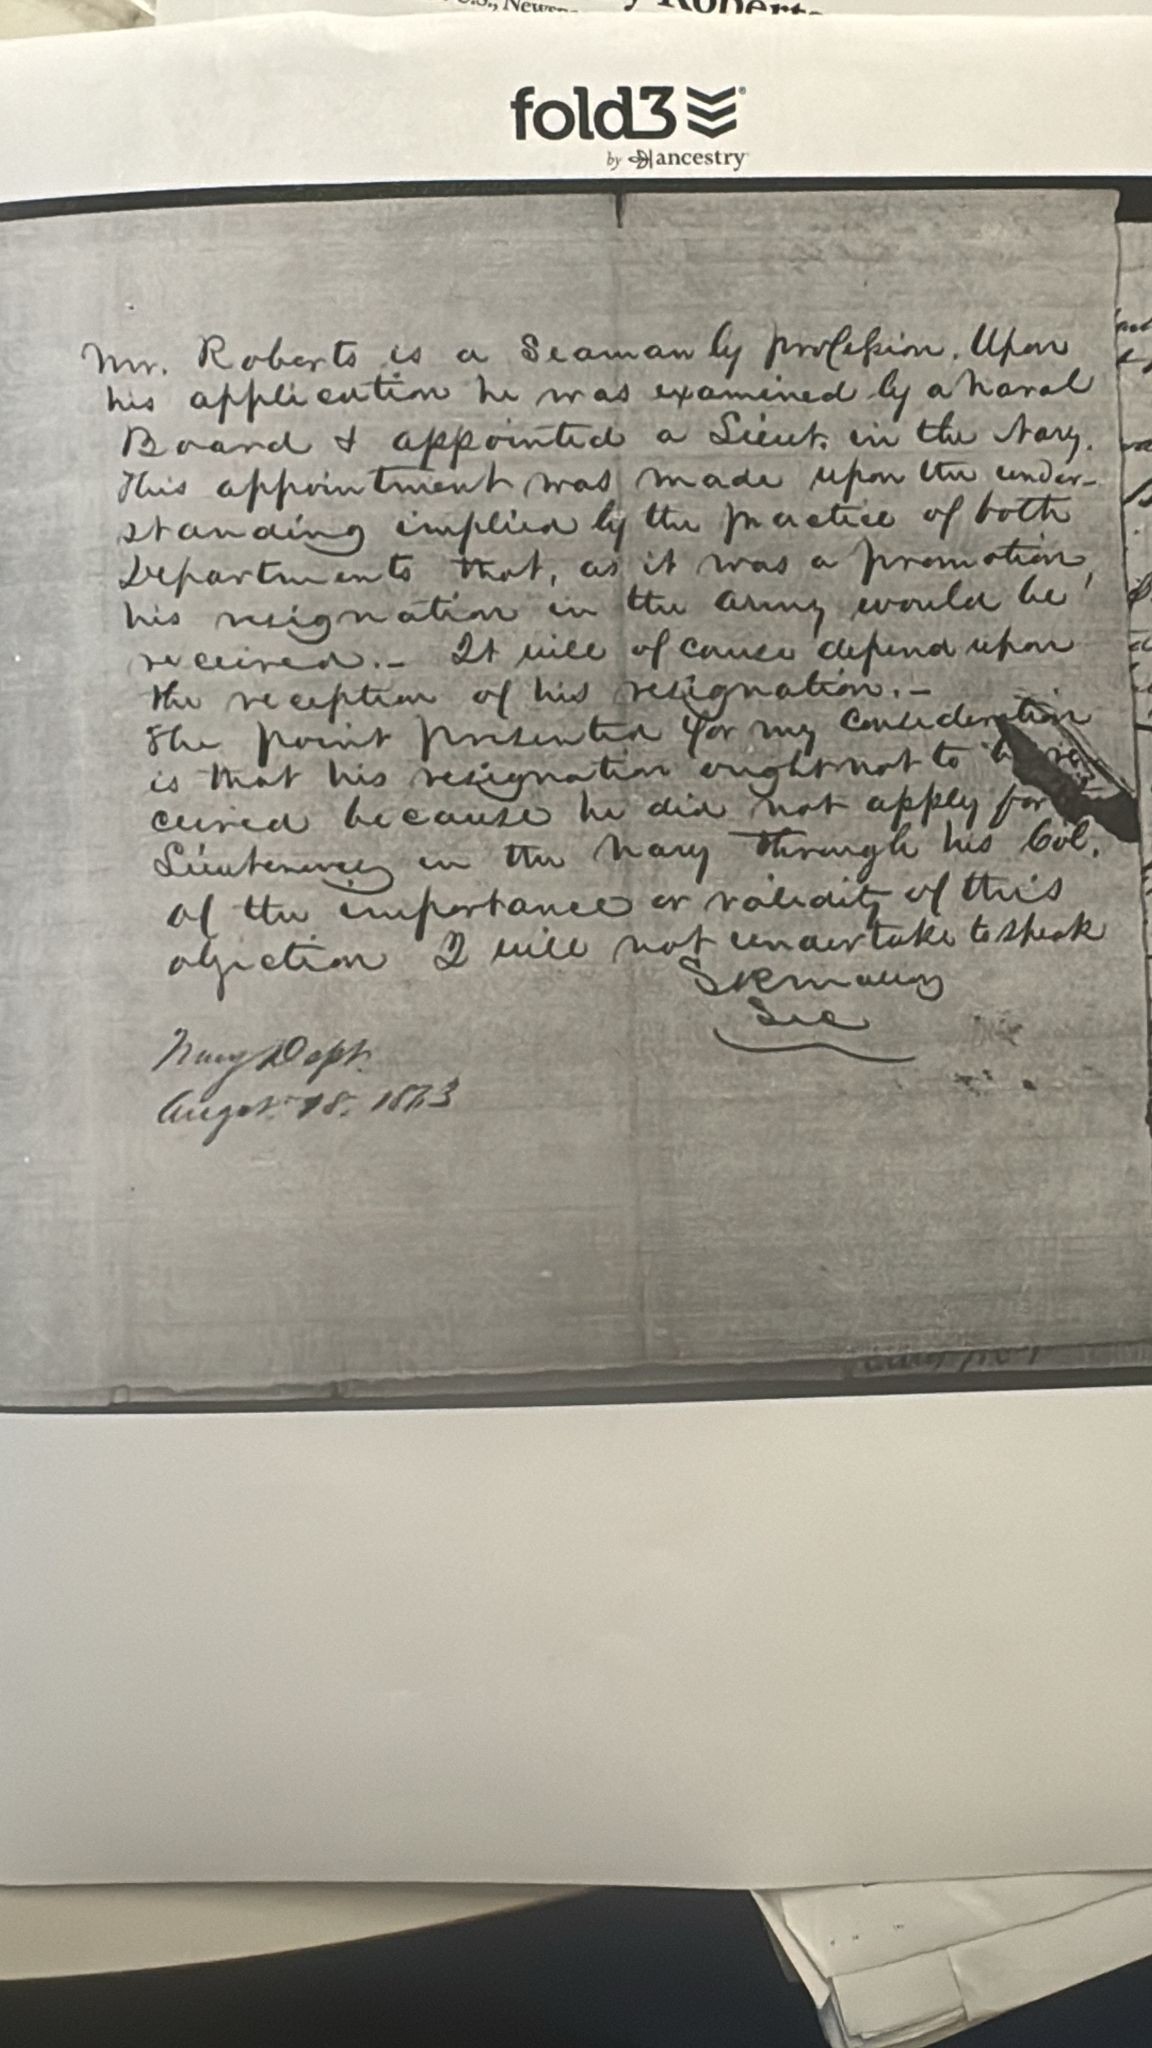 U.S., News
y Roberts
fold3
by ancestry
Mr. Roberts is a Seaman by profession. Upon
his application he was examined by a Naval
Board & appointed a Lieut. in the Navy.
This appointment was made upon the under-
standing implied by the practice of both
Departments that, as it was a promotion,
his resignation in the army would be
received.— It will of cause depend upon
the reception of his resignation.—
The point presented for my consideration
is that his resignation ought not to be re-
ceived because he did not apply for
Lieutenancy in the Navy through his Col.
Of the importance or validity of this
objection I will not undertake to speak
SRMallory
Sec
Navy Dept.
Augst. 18. 1863